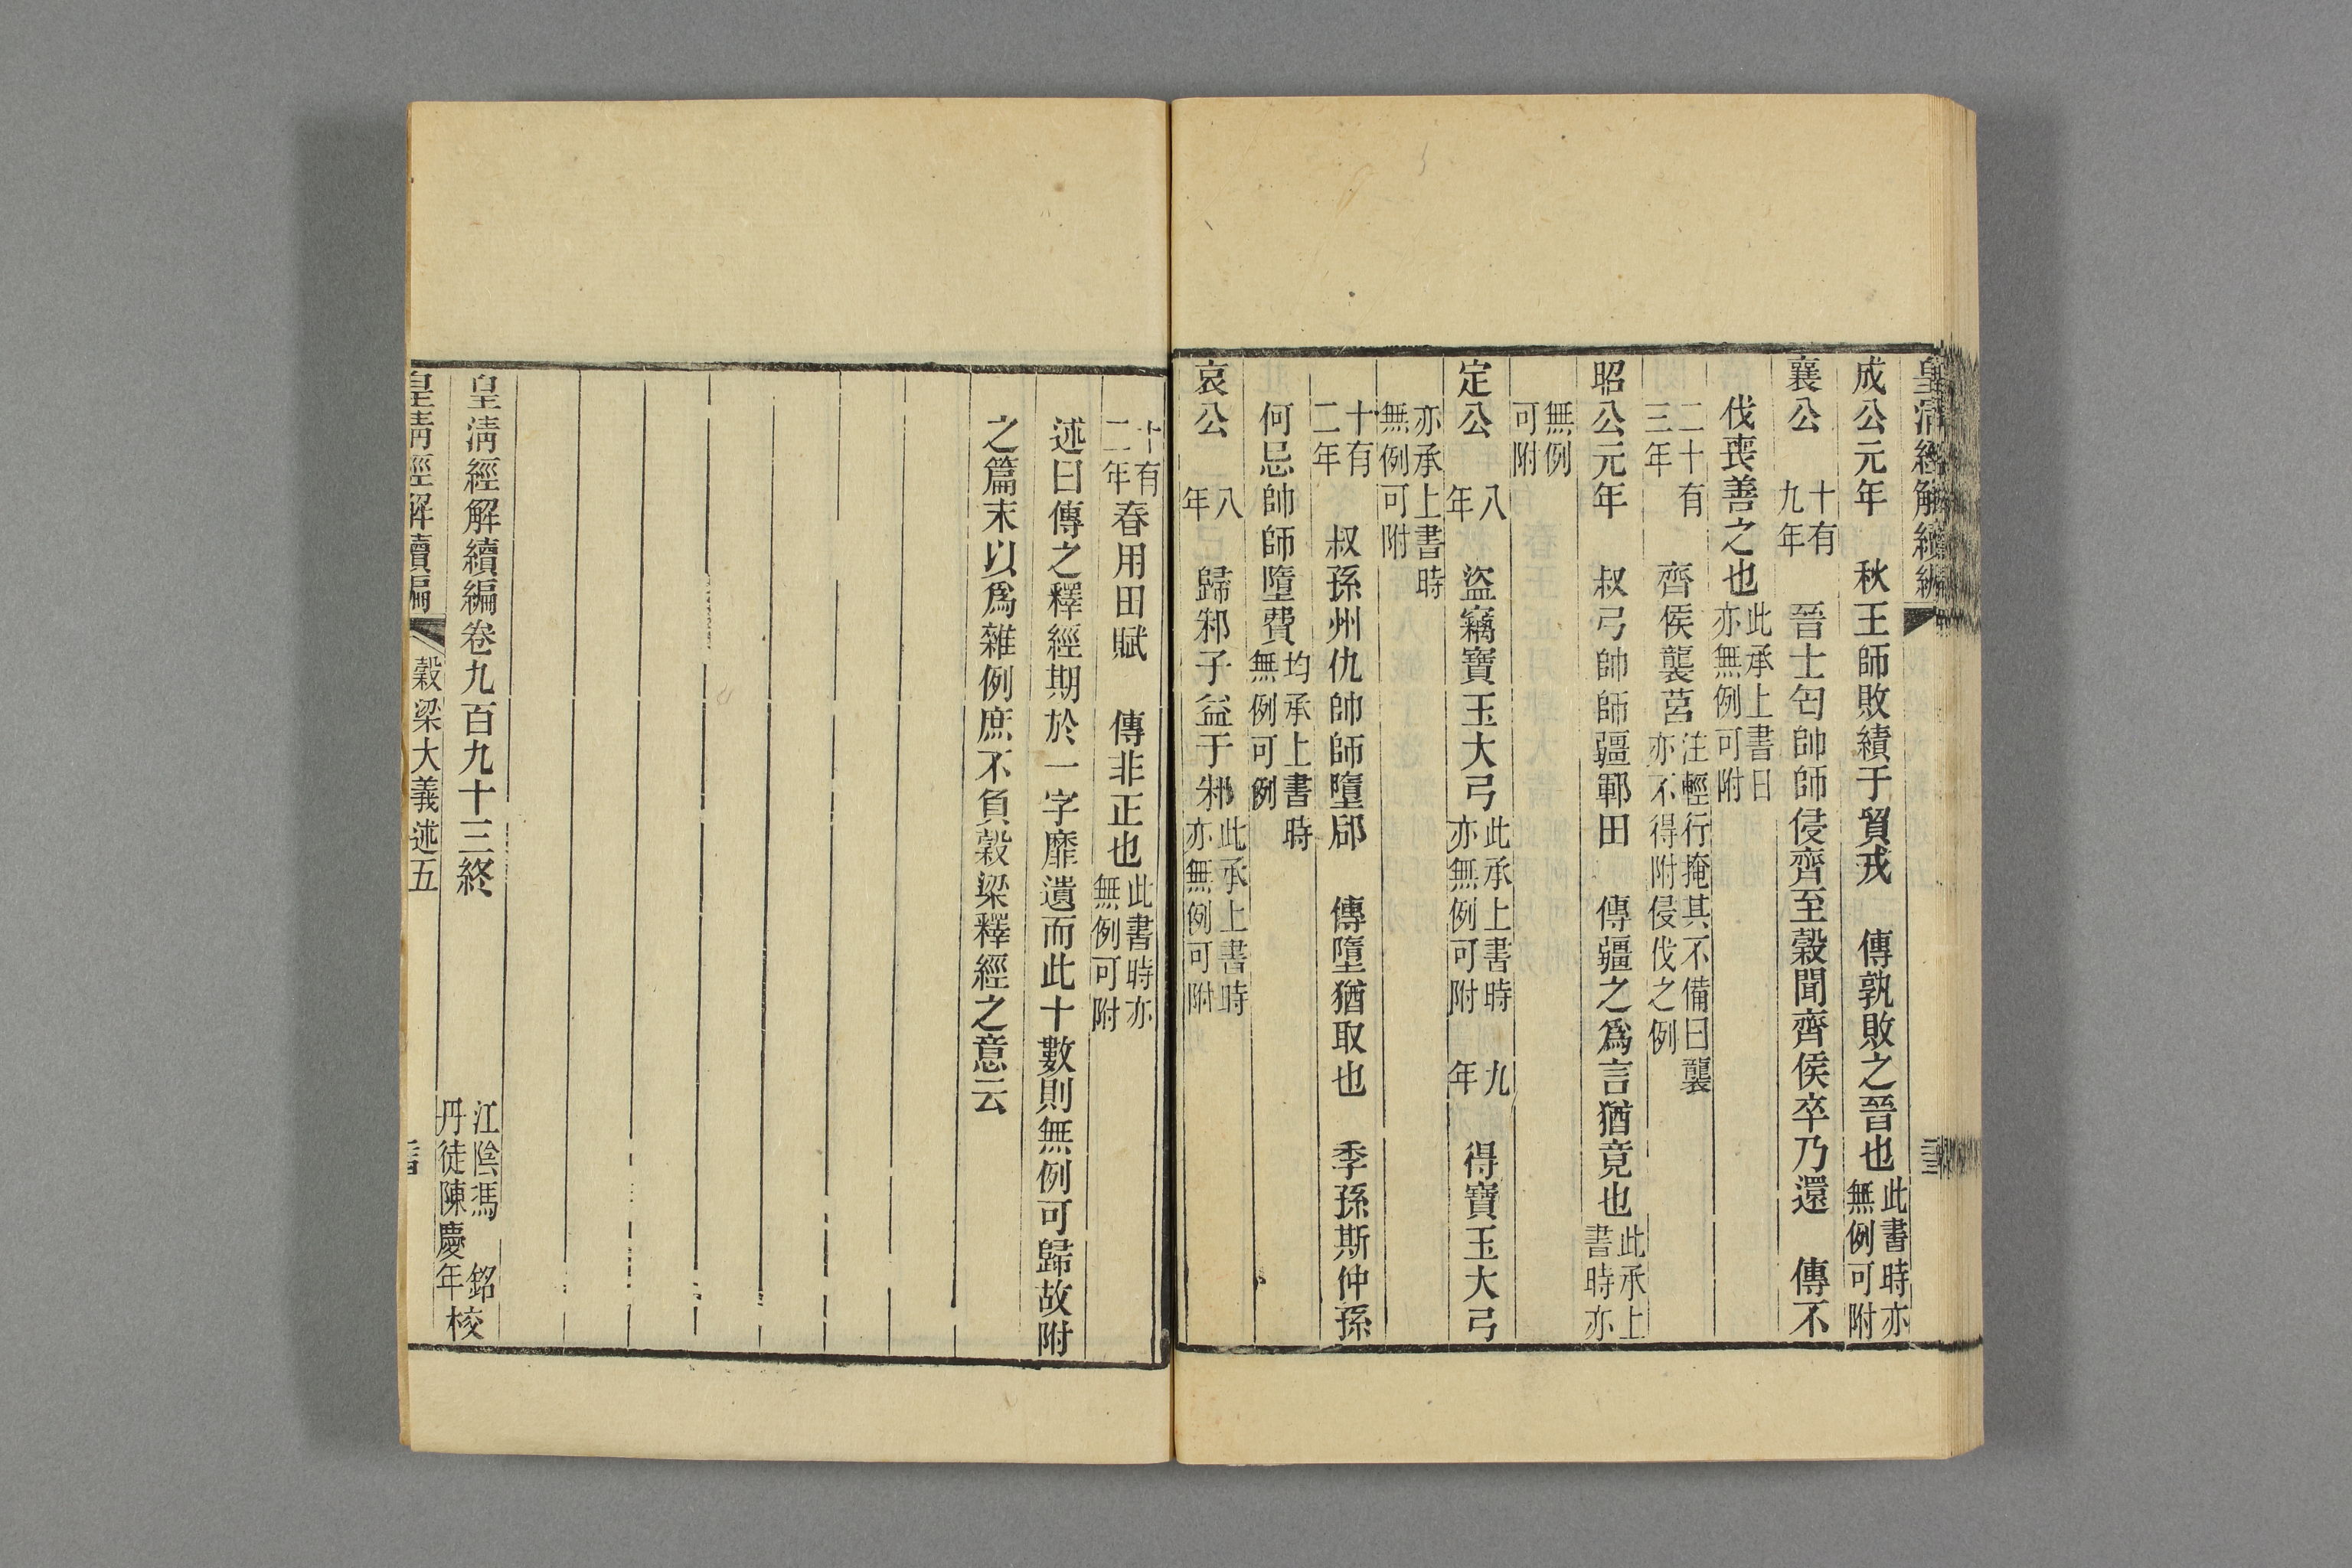 皇清經解續編
成公元年　秋王師敗績于貿戎　傳孰敗之晉也此書時亦無例可附
襄公十有九年　晉士匄帥師侵齊至穀聞齊侯卒乃還　傳不
伐喪善之也此承上書日亦無例可附
二十有三年　齊侯襲莒注輕行掩其不備曰襲亦不得附侵伐之例
昭公元年　叔弓帥師疆鄆田　傳疆之爲言猶竟也此承上書時亦
無例可附
定公八年　盜竊寶玉大弓此承上書時亦無例可附　九年　得寶玉大弓
亦承上書時無例可附
十有二年　叔孫州仇帥師墮郈　傳墮猶取也　季孫斯仲孫
何忌帥師墮費均承上書時無例可例
哀公八年　歸邾子益于邾此承上書時亦無例可附
十有二年春用田賦　傳非正也此書時亦無例可附
述曰傳之釋經期於一字靡遺而此十數則無例可歸故附
之篇末以爲雜例庶不負穀梁釋經之意云
皇清經解續編卷九百九十三終
江陰馮　銘
丹徒陳慶年校
皇清經解續編　穀梁大義述五